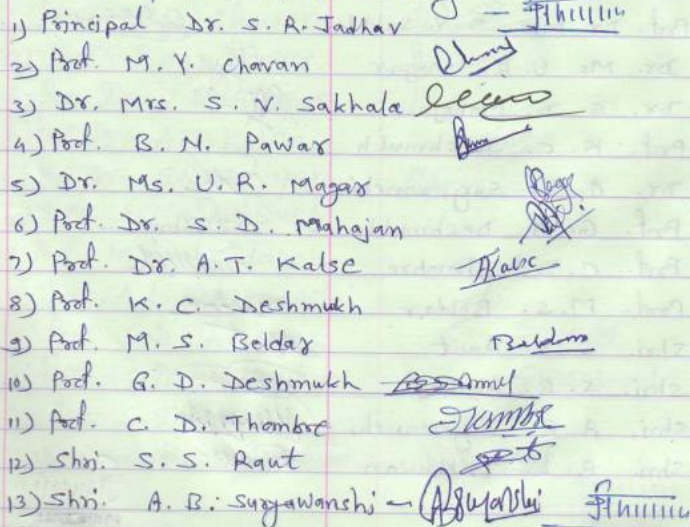 1) Principal Dr. S. R. Jadhav
2) Prof. M. Y. Chavan
3) Dr. Mrs. S. V. Sakhala
4) Prof. B. N. Pawar
5) Dr. Ms. U. R. Magar
6) Prof. Dr. S. D. Mahajan
7) Prof. Dr. A. T. Kalse AKalse
8) Prof. K. C. Deshmukh
9) Prof. M. S. Beldar
10) Prof. G. D. Deshmukh
11) Prof. C. D. Thombre
12) Shri. S. S. Raut
13) Shri. A. B. Suryawanshi -